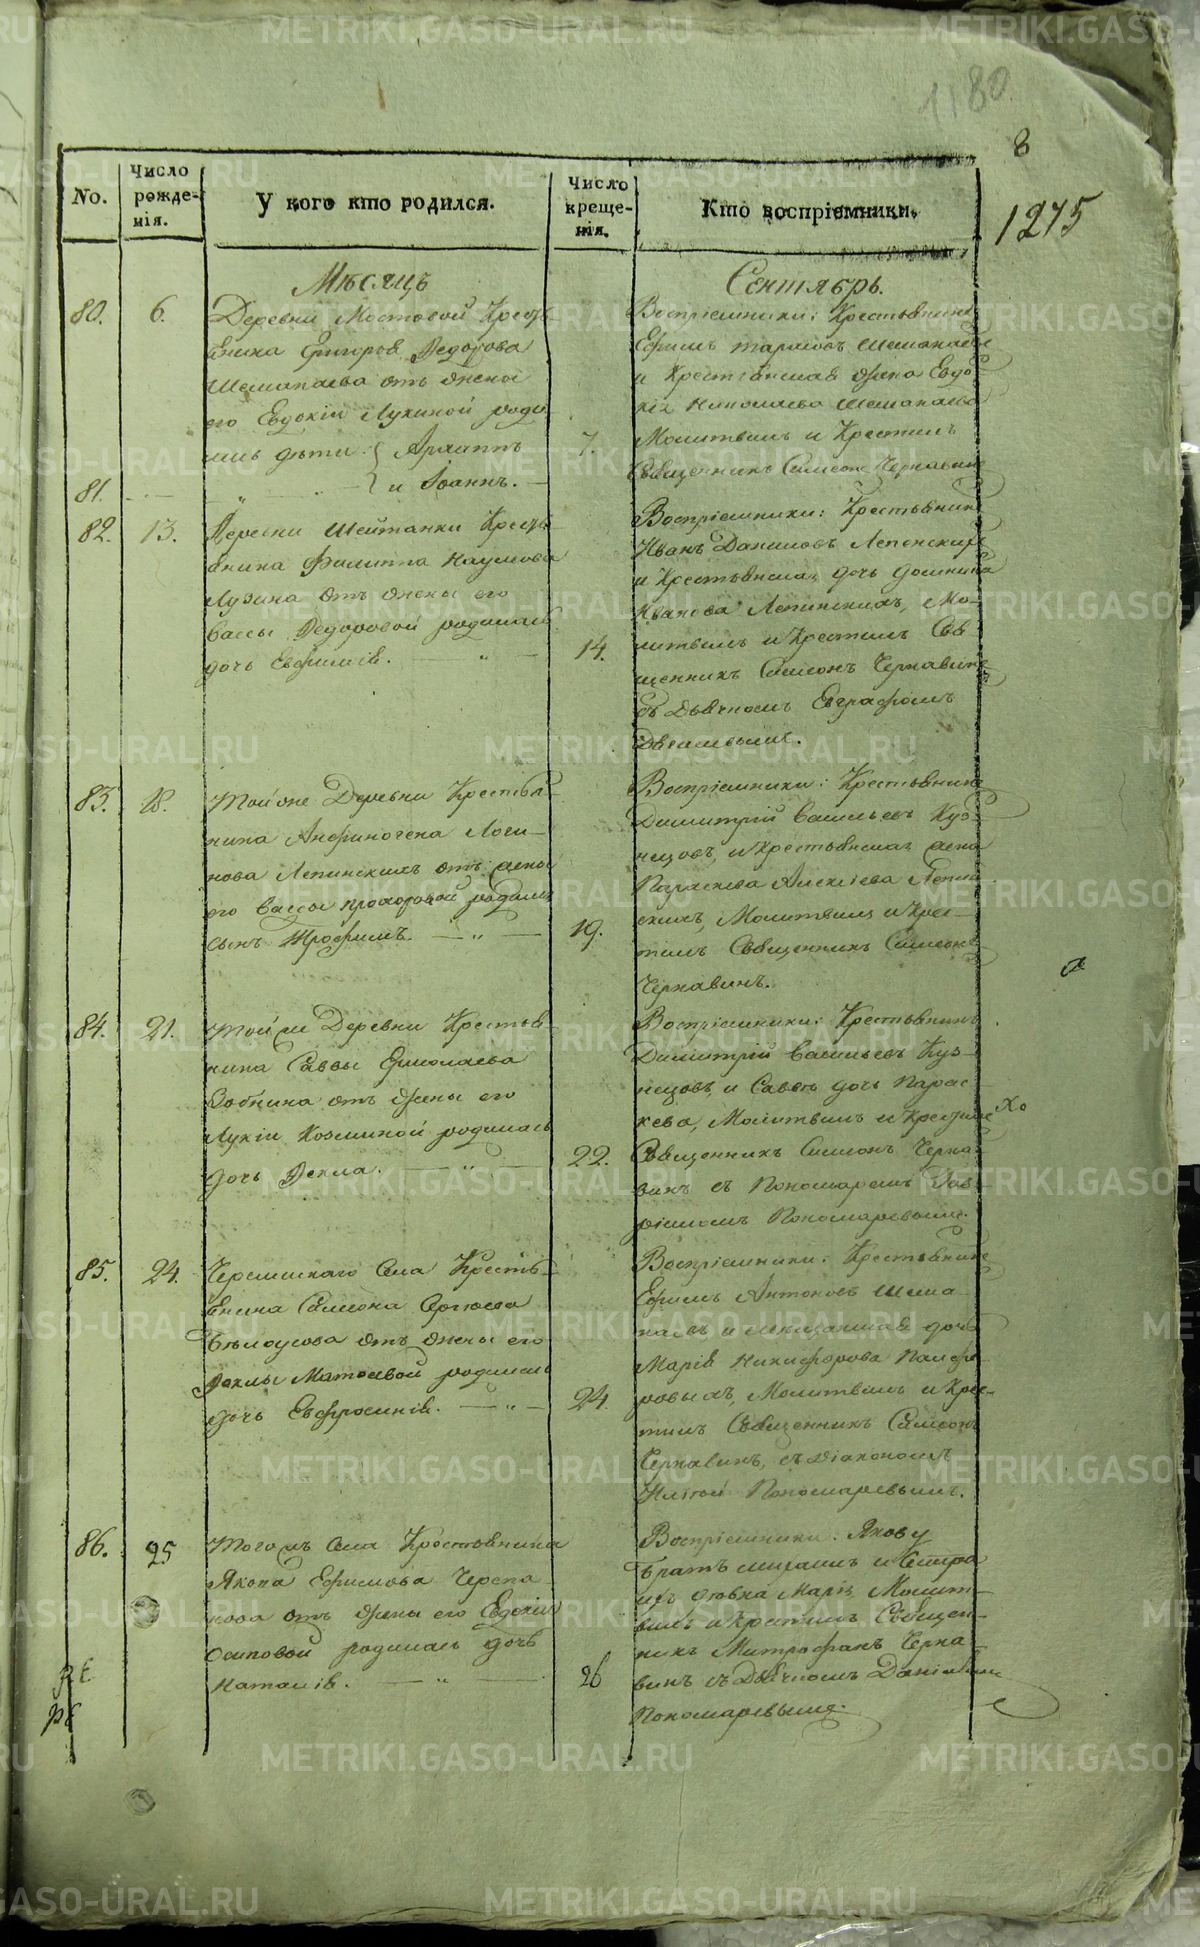 1180
8
1275
No.
Число рожде- нія.
У кого кто родился.
Число креще- нія.
Кто воспріемники.
Мѣсяцъ
Сентябрь.
80. 6. Деревни Мостовой Кресть-
янина Григорья Ѳедорова
Шемшаева отъ жены
его Евдокіи Лукиной роди-
лись дѣти: Архиппъ
81. и Іоаннъ.
Воспріемники: Крестьянинъ
Ефимъ
и Крестьянская жена Евдо-
кія Николаева
7. Молитвилъ и Крестилъ
Священникъ Симеонъ Чернавинъ
82. 13. Деревни Шейтанки Кресть-
янина Филиппа Наумова
Лузина отъ жены его
Вассы Ѳедоровой родилась
дочь Евфимія.
Воспріемники: Крестьянинъ
Иванъ Даниловъ Лепинскихъ
и Крестьянская дочь Домника
Иванова Лепинскихъ, Мо-
14. литвилъ и Крестилъ Свя-
щенникъ Симеонъ Чернавинъ
съ Дьячкомъ Евграфомъ
83. 18. Той же Деревни Крестья-
нина Анфиногена Логи-
нова Лепинскихъ отъ жены
его Вассы Прохоровой родился
сынъ Трофимъ.
Воспріемники: Крестьянинъ
Димитрій Васильевъ Куз-
нецовъ, и Крестьянская жена
Параскева Алексіева Лепин-
скихъ, Молитвилъ и Крес-
19. тилъ Священникъ Симеонъ
Чернавинъ.
84. 21. Той же Деревни Крестья-
нина Саввы Ермолаева
Зобнина отъ Жены его
Лукіи Козминой родилась
дочь Ѳекла.
Воспріемники: Крестьянинъ
Димитрій Васильевъ Куз-
нецовъ, и Саввы дочь Парас-
кева, Молитвилъ и Крестилъ
22. Священникъ Симеонъ Черна-
винъ съ Пономаремъ Гав-
ріиломъ Пономаревымъ.
85. 24. Черемисскаго Села Кресть-
янина Симеона Сергіева
Бѣлоусова отъ жены его
Ѳеклы Матвѣевой родилась
дочь Евфросинія.
Воспріемники: Крестьянинъ
Ефимъ Антоновъ Шема-
наевъ и Мѣщанская дочь
Марія Никифорова Панфе-
24. ровыхъ, Молитвилъ и Крес-
тилъ Священникъ Симеонъ
Чернавинъ, съ Діакономъ
Иліей Пономаревымъ.
86. 25 Того жъ Села Крестьянина
Якова Ефимова Черепа-
нова отъ Жены его Евдокіи
Осиповой родилась дочь
Наталія.
Воспріемники: Якову
братъ
Марія Молит-
вилъ и Крестилъ Священ-
никъ Митрофанъ Черна-
26 винъ съ Дьячкомъ Даніиломъ
Пономаревымъ.
METRIKI.GASO-URAL.RU